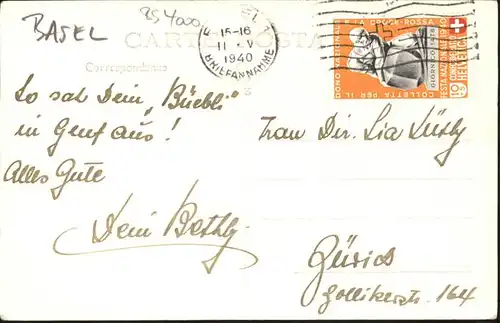 BASEL
BS 4000
CARTE POSTALE
15-16
1940
BRIEFANNAHME
DONO NAZIONALE E LA CROCE-ROSSA
COLLETTA PER IL
FESTA NAZIONALE 1940
GIORNICO 1478
HELVETIA
So sah Dein „Büebli"
in Genf aus!
Alles Gute
Dein Bethly
Frau Dir. Lia Lüthy
Zürich
Zollikerstr. 164